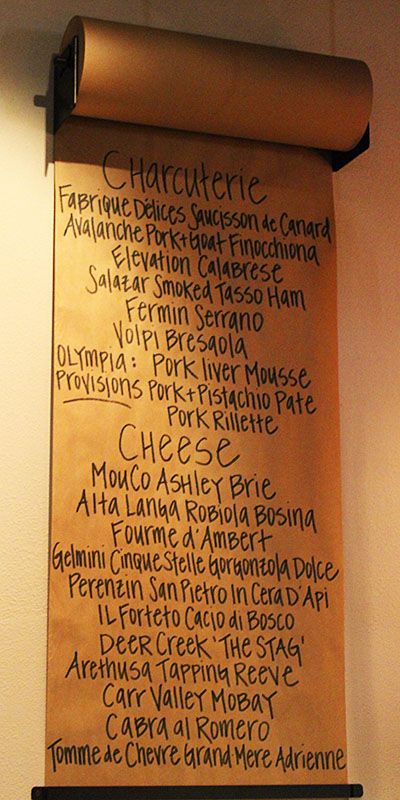 Charcuterie
Fabrique Délices Saucisson de Canard
Avalanche Pork+Goat Finocchiona
Elevation Calabrese
Salazar Smoked Tasso Ham
Fermin Serrano
Volpi Bresaola
Olympia: Pork liver Mousse
Provisions Pork+Pistachio Pate
Pork Rillette
Cheese
MouCo Ashley Brie
Alta Langa Robiola Bosina
Fourme d'Ambert
Gelmini Cinque Stelle Gorgonzola Dolce
Perenzin San Pietro In Cera D'Api
IL Forteto Cacio di Bosco
Deer Creek 'The STAG'
Arethusa Tapping Reeve
Carr Valley Mobay
Cabra al Romero
Tomme de Chevre Grand-Mere Adrienne